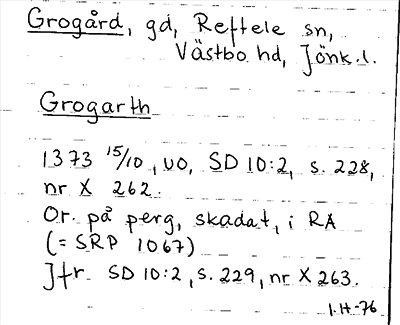 Grogård, gd, Reftele sn,
Västbo hd, Jönk.l.
Grogarth
1373 15/10, uo, SD 10:2, s. 228,
nr X 262.
Or. på perg, skadat, i RA
(= SRP 1067)
Jfr. SD 10:2, s. 229, nr X 263.
1.H-76